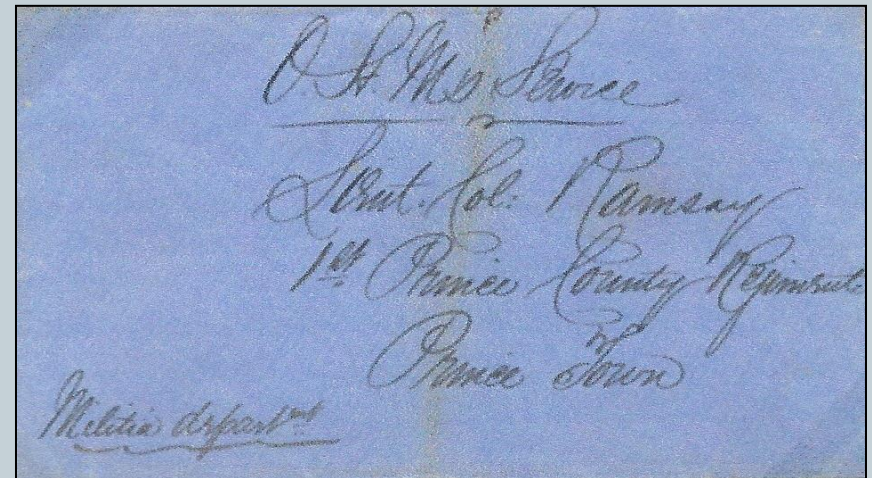 O. H. Ms. Service
Lieut. Col: Ramsay
1st Prince County Regiment
Prince Town
Militia departmt